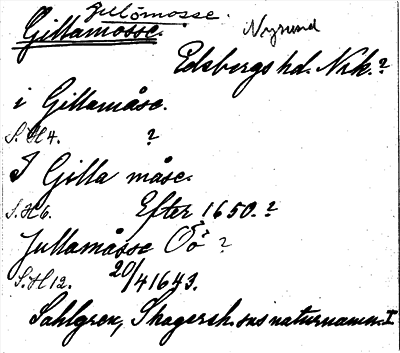 Gulömosse.
Gillamosse. Nysund
Edsbergs hd. Nrk.?
i Gillamåse.
S.H 4. ?
I Gilla måse.
S.H 6. Efter 1650.?
Jullamåsse Ö?
S.H 12. 20/4 1643.
Sahlgren, Skagersh. sns naturnamn. I